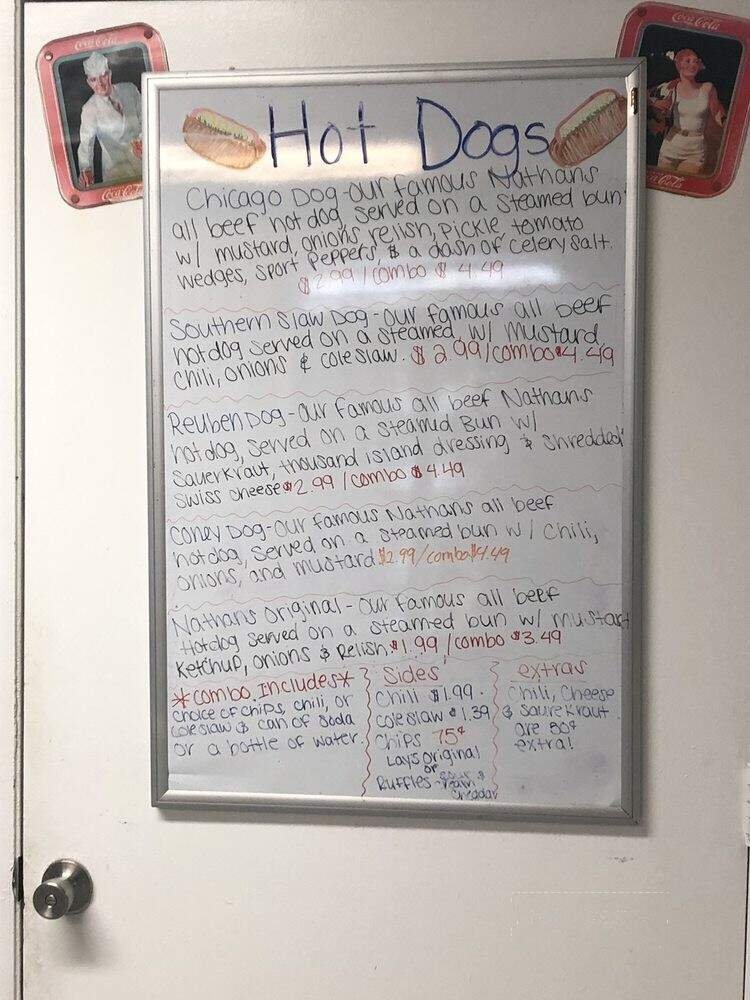 Coca-Cola
Coca-Cola
Hot Dogs
Chicago Dog-our famous Nathans
all beef hot dog, served on a steamed bun
w/ mustard, onions relish, pickle, tomato
wedges, sport peppers, & a dash of celery salt.
$2.99 / combo $4.49
Southern Slaw Dog-our famous all beef
hotdog served on a steamed, w/ mustard,
chili, onions & coleslaw. $2.99/combo $4.49
Reuben Dog-our famous all beef Nathans
hotdog, served on a steamed Bun w/
Sauerkraut, thousand island dressing & shredded
swiss cheese $2.99 / combo $4.49
Coney Dog-our famous Nathans all beef
hotdog, served on a steamed bun w/ chili,
onions, and mustard $2.99/combo $4.49
Nathans original-our famous all beef
Hotdog served on a steamed bun w/ mustard
Ketchup, onions & Relish. $1.99 / combo $3.49
*combo includes*
choice of chips, chili, or
coleslaw & can of soda
or a bottle of water.
Sides
Chili $1.99.
coleslaw $1.39
Chips 75¢
Lays original
or
Ruffles-sour &
cream
cheddar
extras
Chili, Cheese
& Saurekraut
are 50¢
extra!
Coca-Cola
Coca-Cola